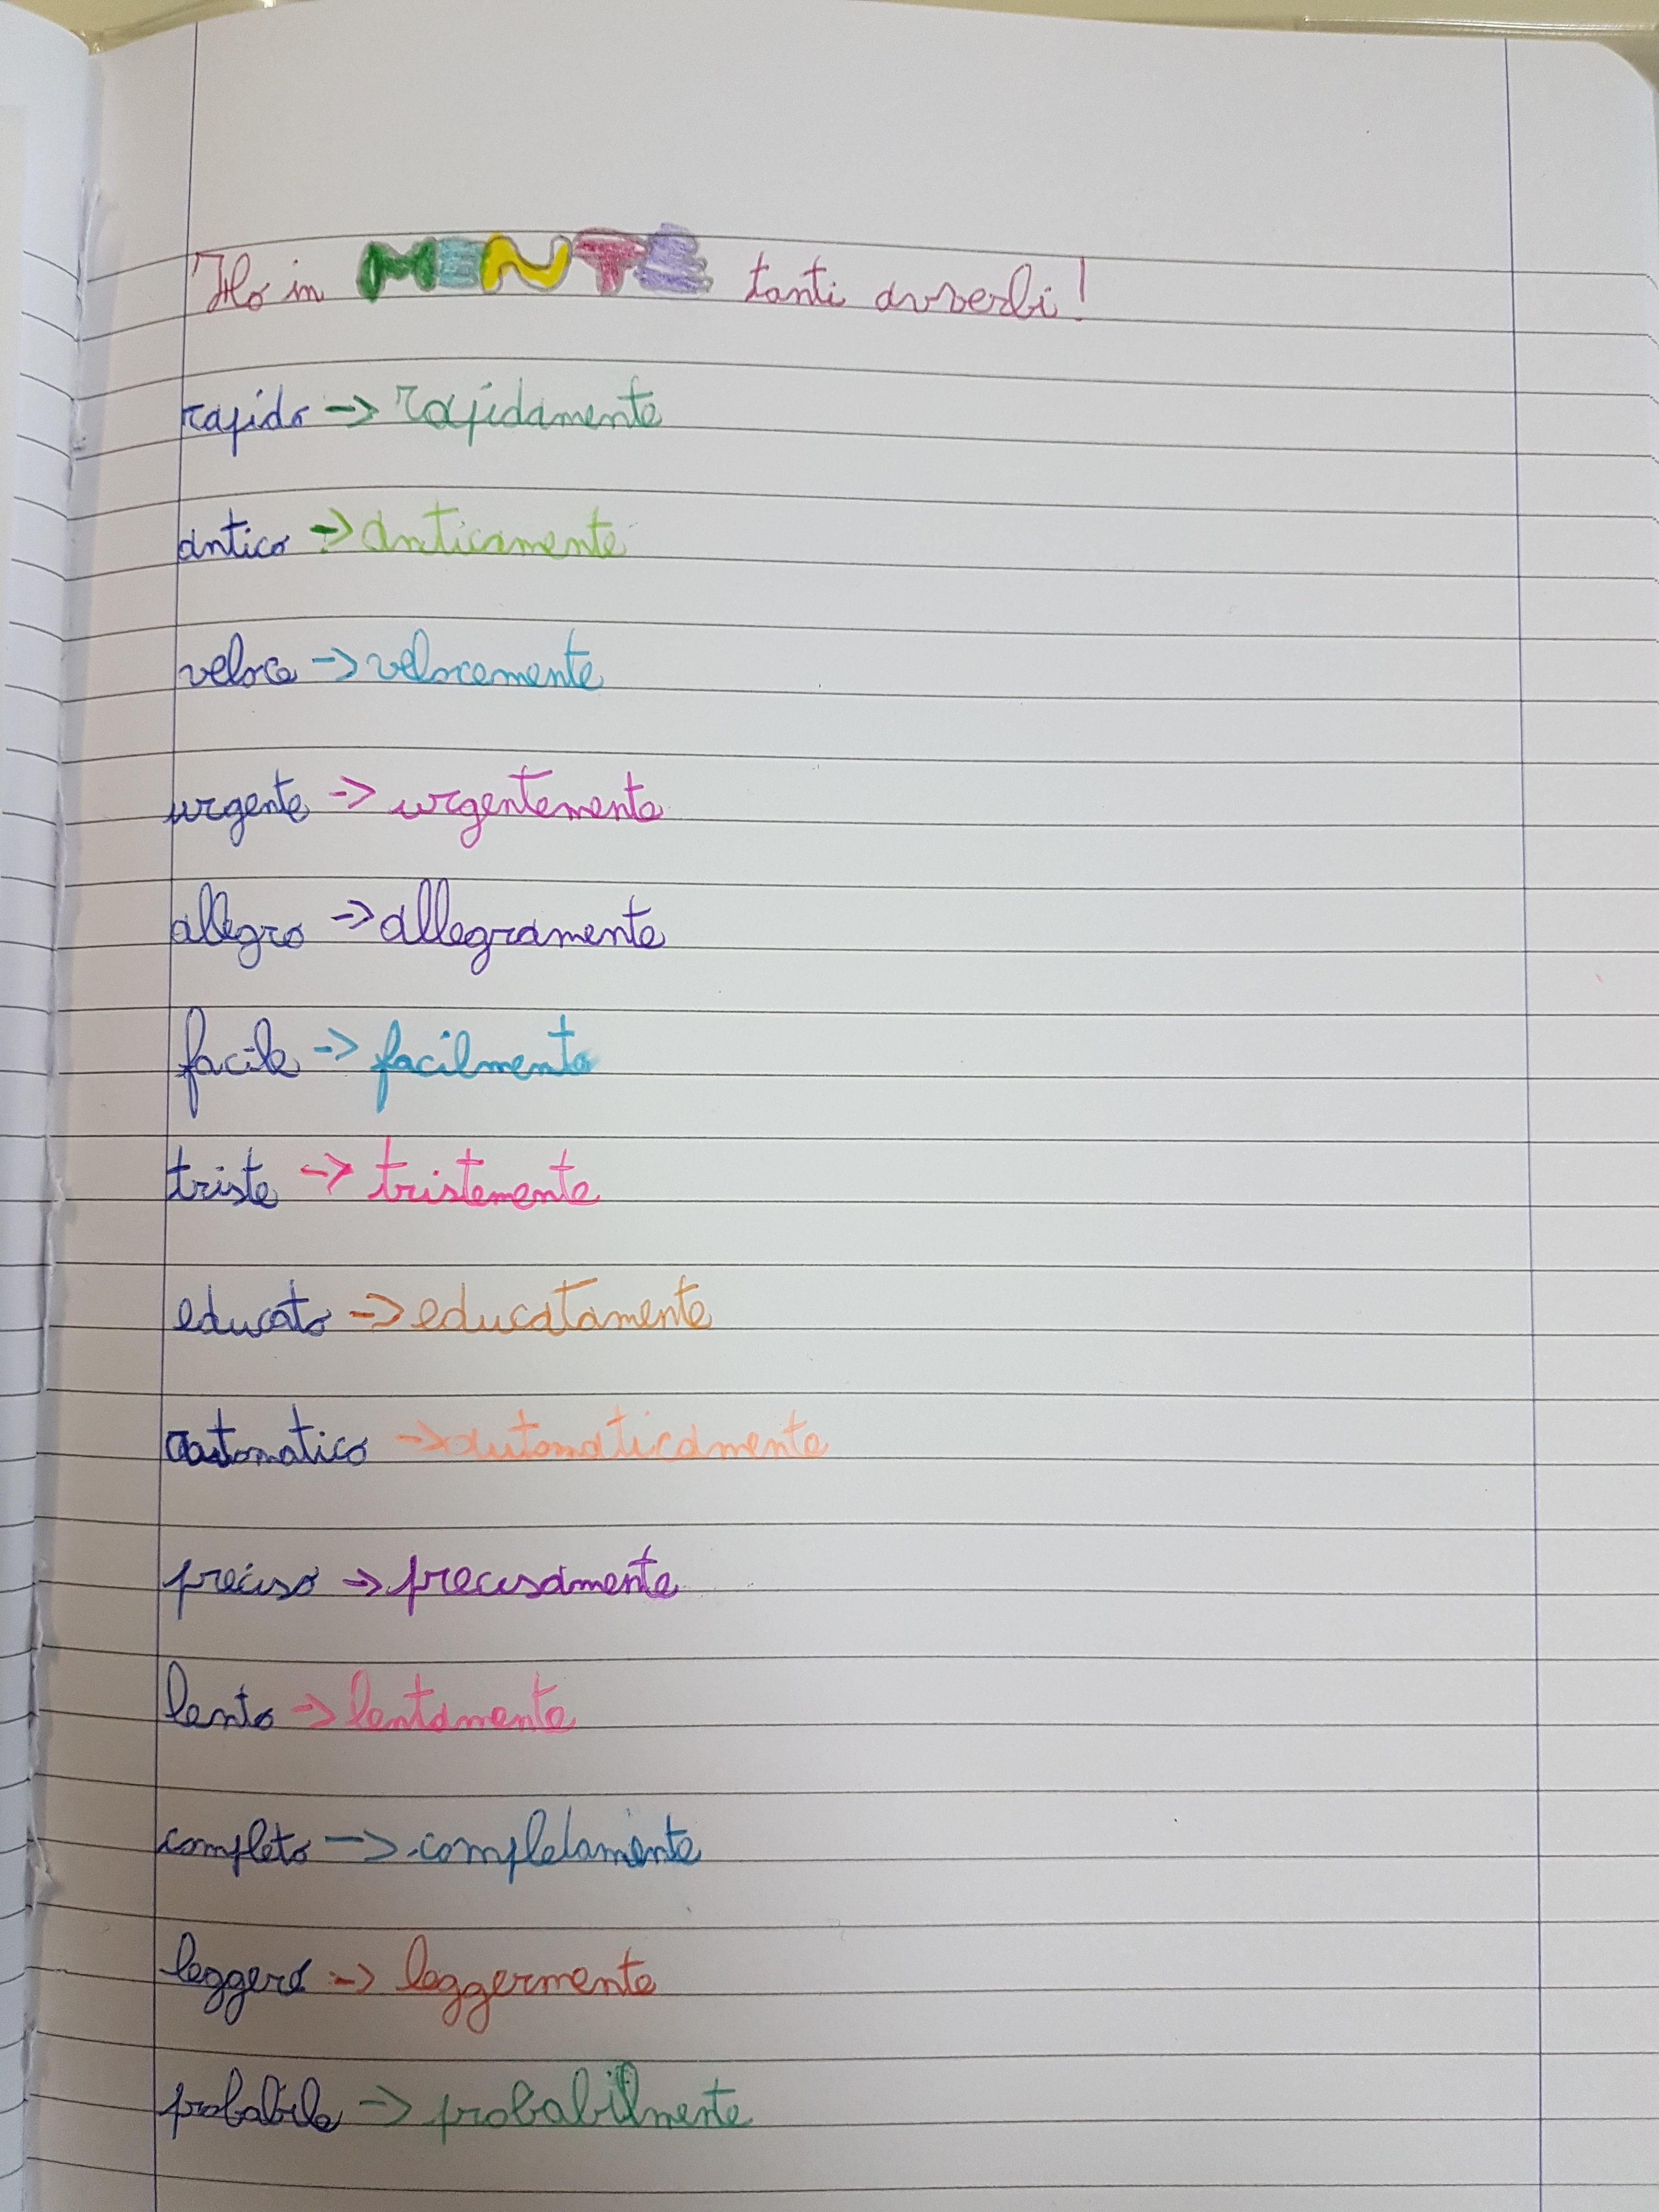 Ho in MENTE tanti avverbi!
rapido -> rapidamente
antico -> anticamente
veloce -> velocemente
urgente -> urgentemente
allegro -> allegramente
facile -> facilmente
triste -> tristemente
educato -> educatamente
automatico -> automaticamente
preciso -> precisamente
lento -> lentamente
completo -> completamente
leggero -> leggermente
probabile -> probabilmente